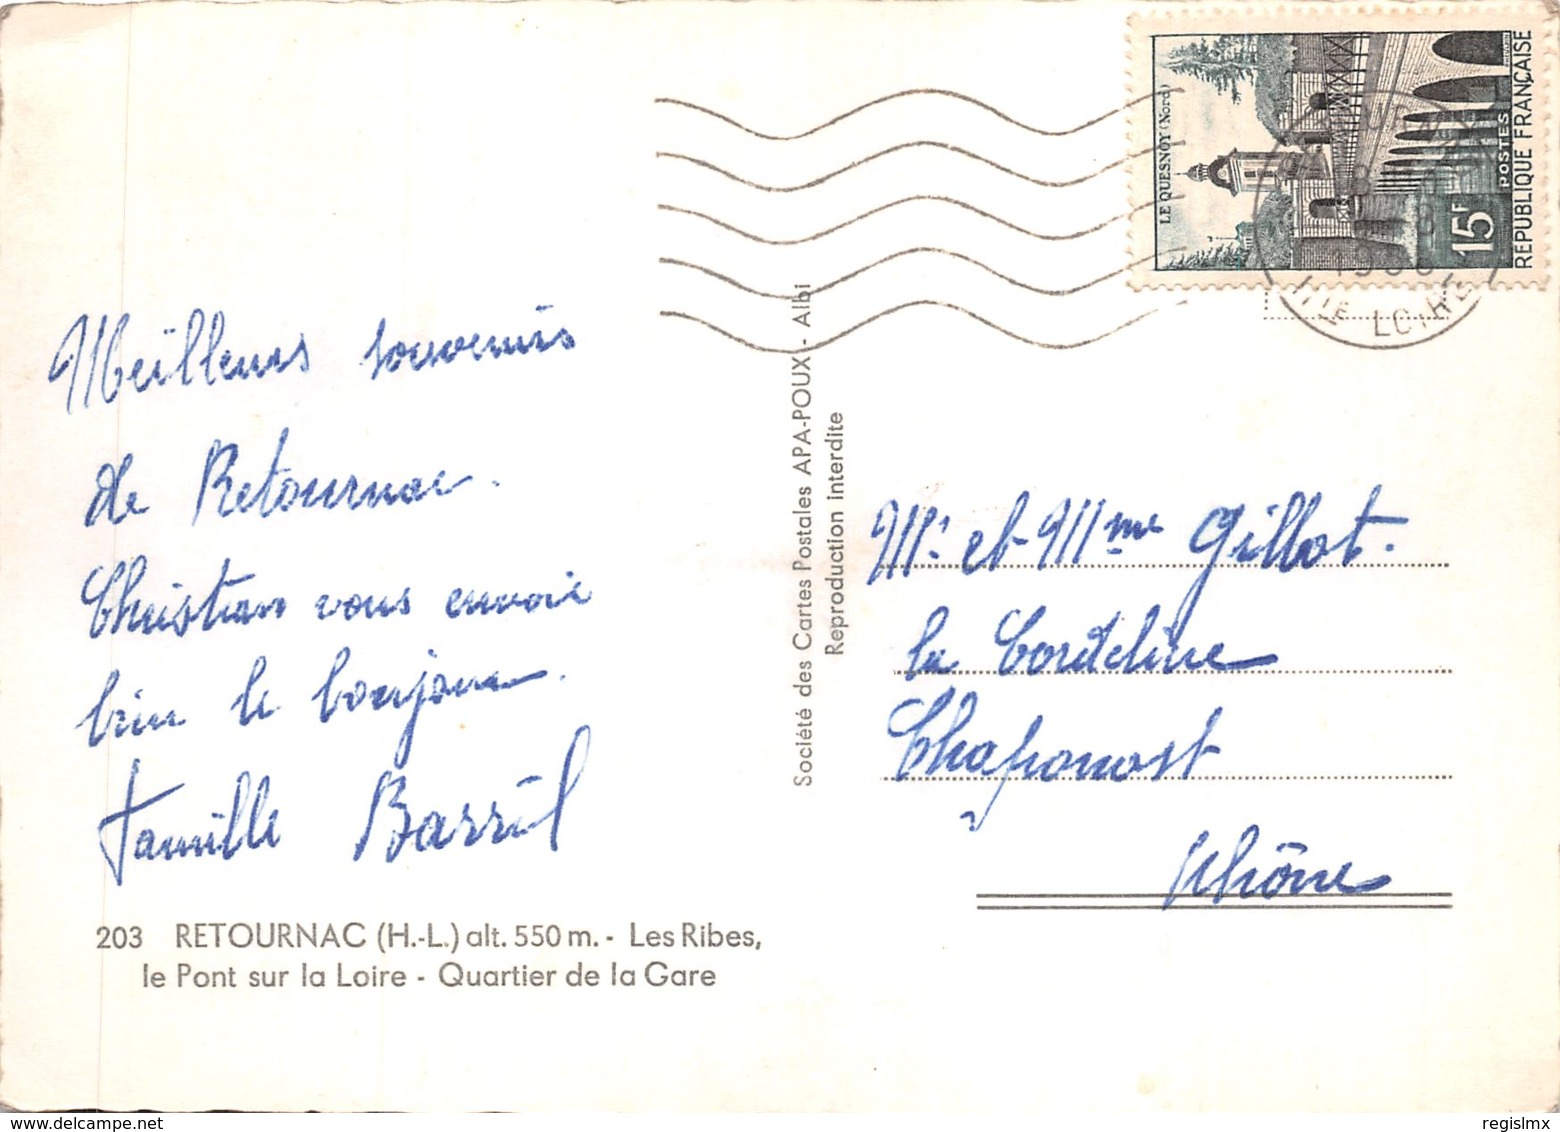 Meilleurs souvenirs
de Retournac.
Christian vous envoie
bien le bonjour.
Famille Barrül
203 RETOURNAC (H.-L.) alt. 550 m. - Les Ribes,
le Pont sur la Loire - Quartier de la Gare
Société des Cartes Postales APA-POUX - Albi
Reproduction interdite
LE QUESNOY (Nord)
15F
POSTES
RÉPUBLIQUE FRANÇAISE
HTE LOIRE
Mr et Mme Gillot.
la Cordeline
Chaponost
Rhône
regislmx